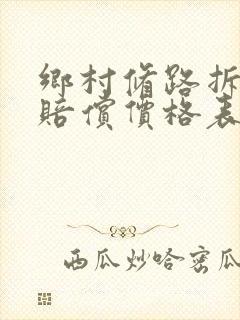 鄉村脩路拆
賠償價格表
西瓜炒哈密瓜